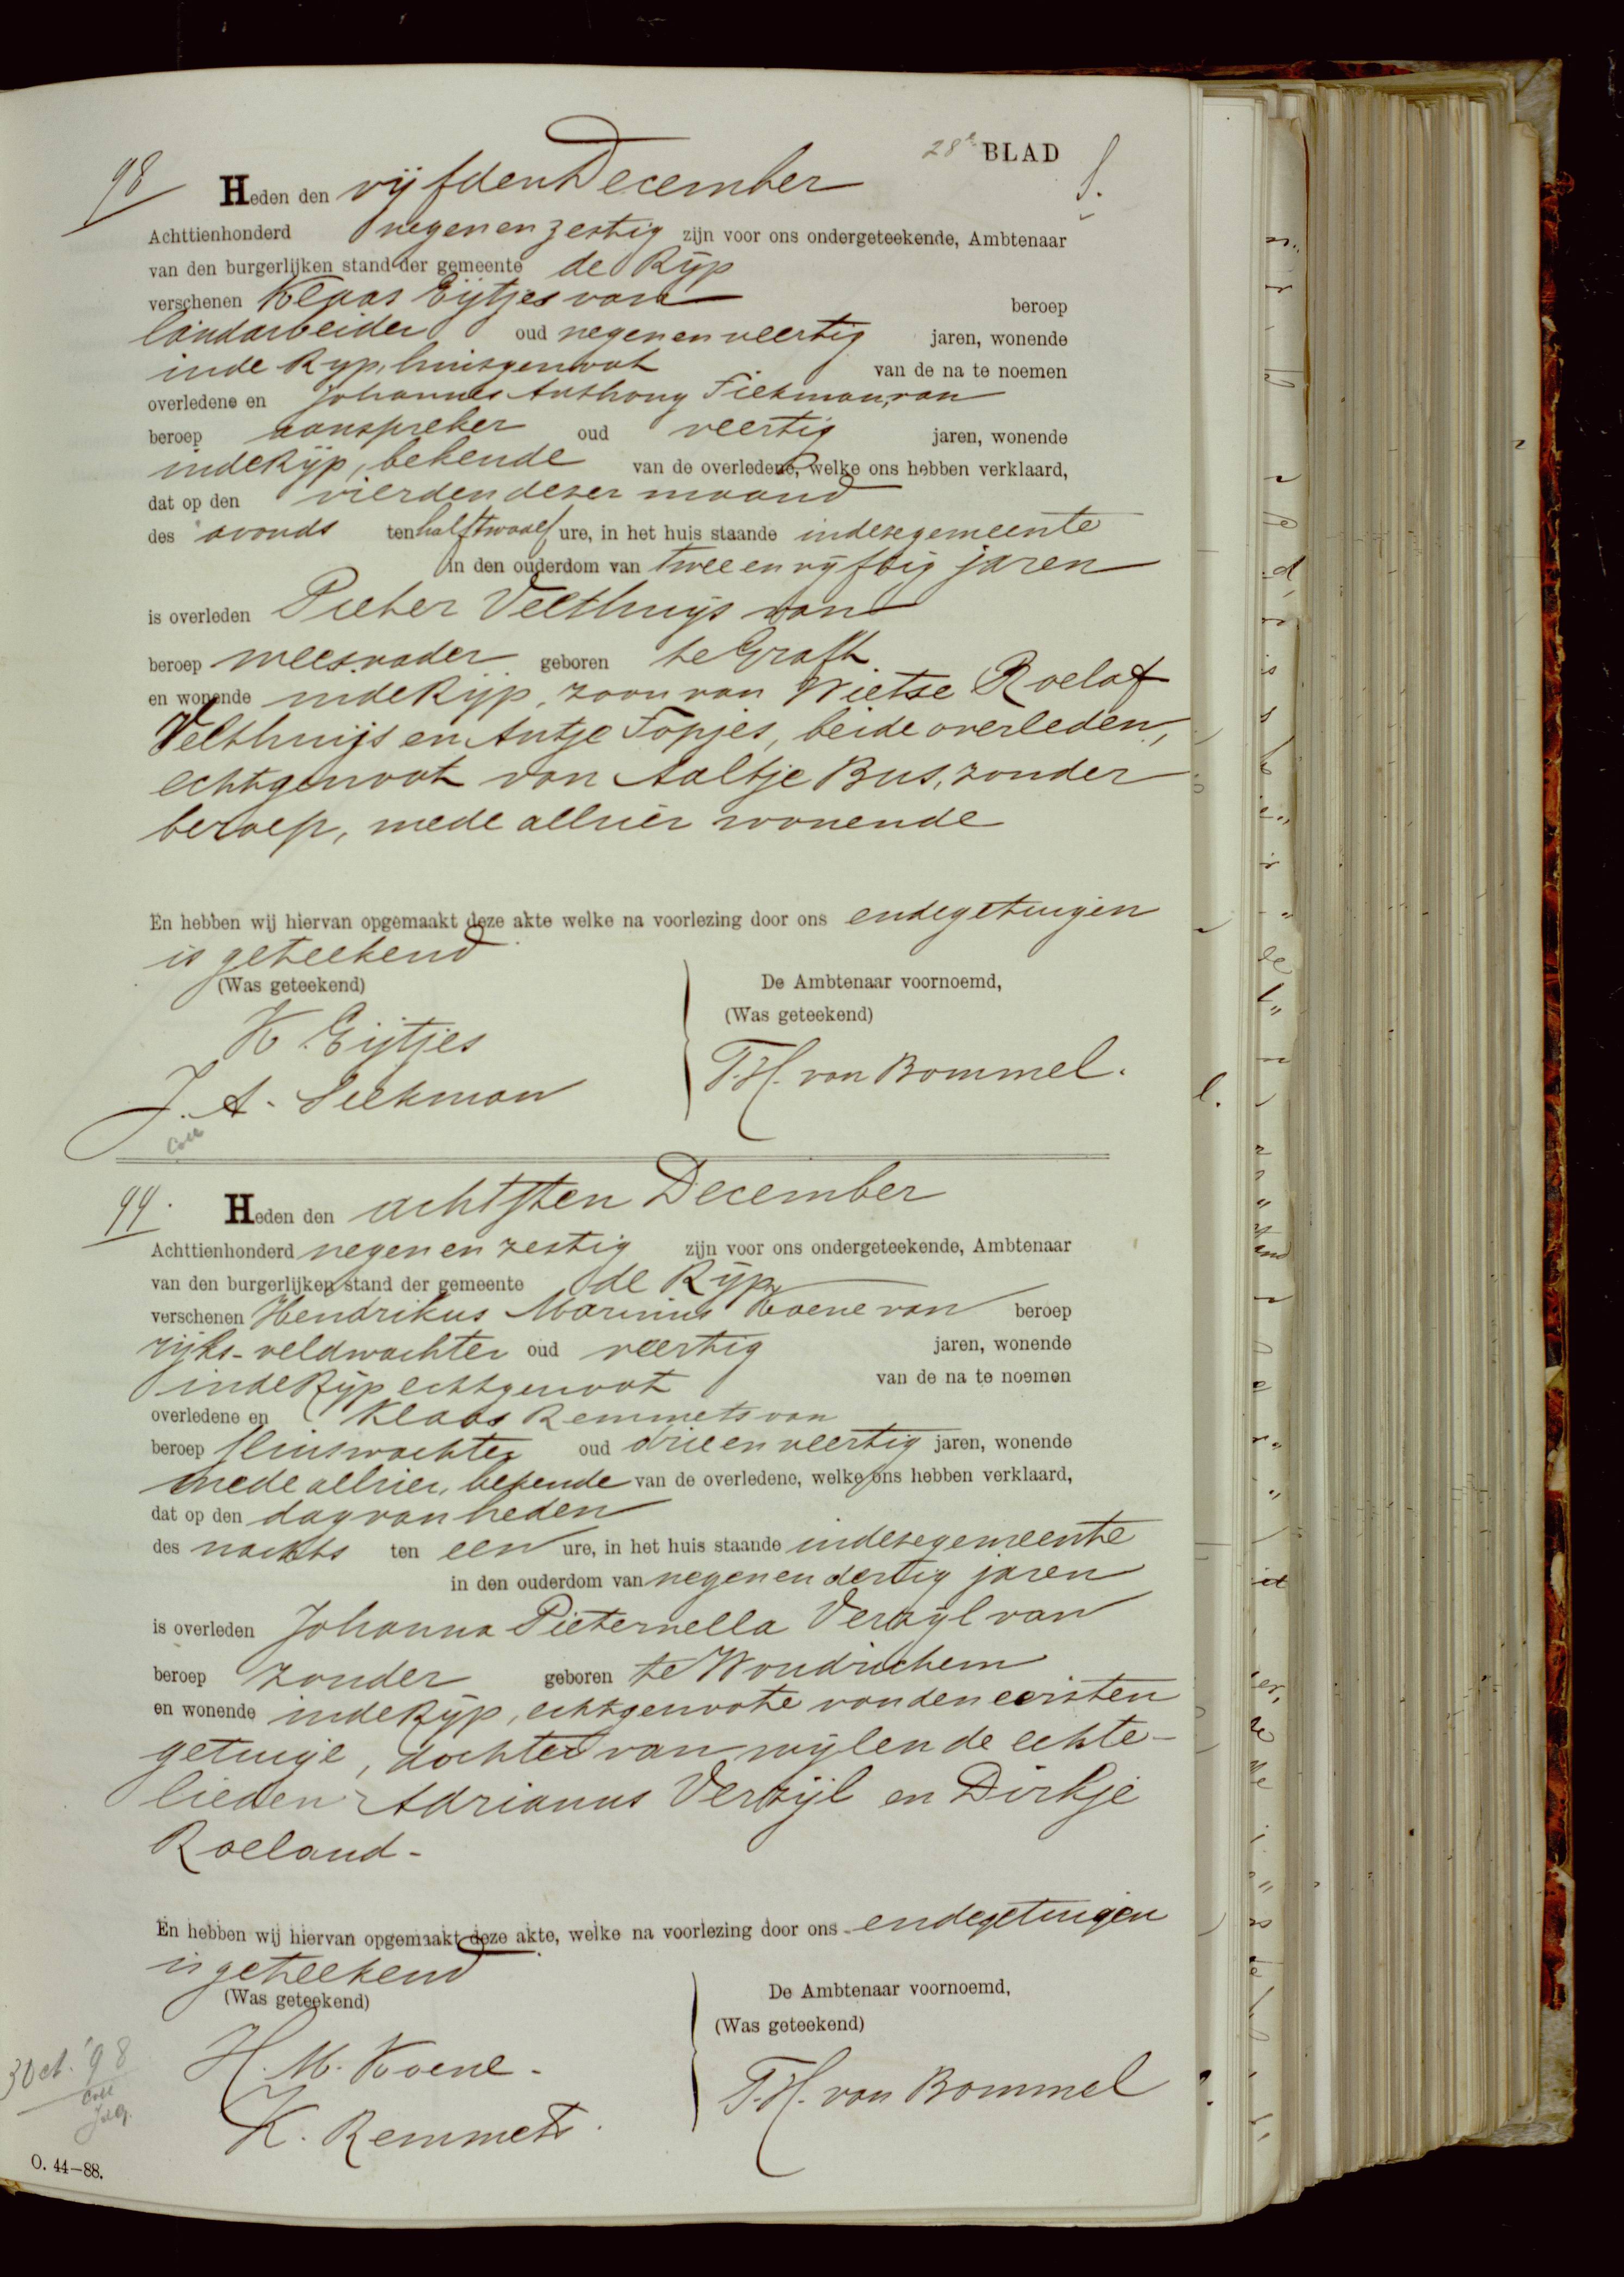 28e BLAD
98 Heden den vijfden December S.
Achttienhonderd negen en zestig zijn voor ons ondergeteekende, Ambtenaar
van den burgerlijken stand der gemeente de Rijp
verschenen Klaas Eijtjes van beroep
landarbeider oud negen en veertig jaren, wonende
in de Rijp, huisgenoot van de na te noemen
overledene en Johannes Anthony Siekman, van
beroep aanspreker oud veertig jaren, wonende
in de Rijp, bekende van de overledene, welke ons hebben verklaard,
dat op den vierden dezer maand
des avonds ten half twaalf ure, in het huis staande in deze gemeente
in den ouderdom van twee en vijftig jaren
is overleden Pieter Velthuijs van
beroep weesvader geboren te Graft
en wonende in de Rijp, zoon van Wietse Roelof
Velthuijs en Antje Fopjes, beide overleden,
echtgenoot van Aaltje Bus, zonder
beroep, mede alhier wonende
En hebben wij hiervan opgemaakt deze akte welke na voorlezing door ons en de getuigen
is geteekend
(Was geteekend) De Ambtenaar voornoemd,
(Was geteekend)
K. Eijtjes
T.H. van Bommel.
J. A. Siekman
Coll
99. Heden den achtsten December
Achttienhonderd negen en zestig zijn voor ons ondergeteekende, Ambtenaar
van den burgerlijken stand der gemeente de Rijp
verschenen Hendrikus Marinus Koene van beroep
rijks-veldwachter oud veertig jaren, wonende
in de Rijp echtgenoot van de na te noemen
overledene en Klaas Remmets van
beroep sluiswachter oud drie en veertig jaren, wonende
mede alhier, bekende van de overledene, welke ons hebben verklaard,
dat op den dag van heden
des nachts ten een ure, in het huis staande in deze gemeente
in den ouderdom van negen en dertig jaren
is overleden Johanna Pieternella Verzijl van
beroep zonder geboren te Woudrichem
en wonende in de Rijp, echtgenoote van den eersten
getuige, dochter van wijlen de echte-
lieden Adrianus Verzijl en Dirkje
Roeland.
En hebben wij hiervan opgemaakt deze akte, welke na voorlezing door ons en de getuigen
is geteekend
(Was geteekend) De Ambtenaar voornoemd,
(Was geteekend)
H. M. Koene.
T.H. van Bommel
K. Remmets.
3 Oct. '98
Coll
O. 44—88.